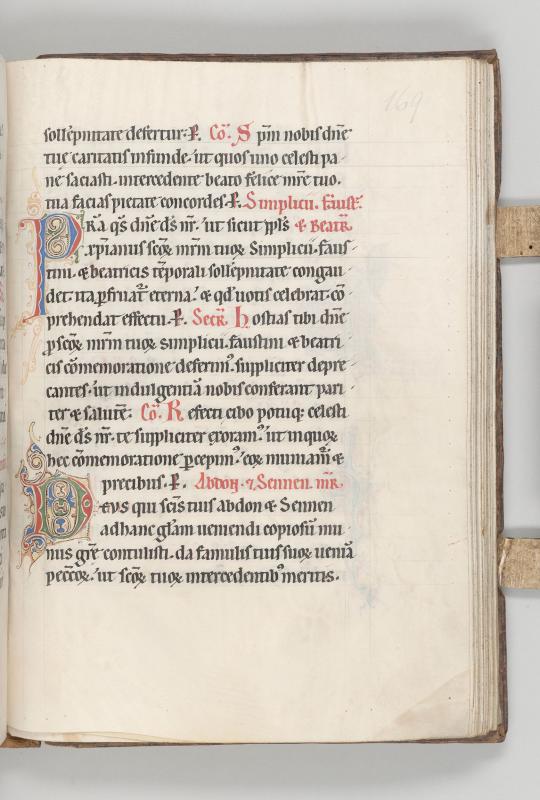 169
sollēpnitate defertur. P. Cō. S pm̄ nobis dn̄e
tue caritatis infunde. ut quos uno celesti pa
ne saciasti. intercedente beato felice mr̄e tuo.
tua facias pietate concordes. P. Simplicii. faust.
P ra qs̄ dn̄e ds̄ nr̄. ut sicut ppls̄ & Beatr̄.
xpianus scōꝝ mr̄m tuoꝝ Simplicii. faus
tini. & beatricis tēporali sollēpnitate congau
det. ita pfruat̄ eterna. & qd̄ uotis celebrat. cō
prehendat effectu. P. Secr̄. Hostias tibi dn̄e
ꝓ scōꝝ mr̄m tuoꝝ simplicii. faustini & beatri
cis cōmemoratione deferim⁹. suppliciter depre
cantes. ut indulgentiā nobis conferant pari
ter & salutē. Cō. Refecti cibo potuqꝫ celesti
dn̄e ds̄ nr̄. te suppliciter exoram⁹. ut in quoꝝ
hec cōmemoratione ꝑcepim⁹. eoꝝ muniam̄ &
precibus. P. Abdon. & Sennen. mr̄.
Deus qui scīs tuis abdon & Sennen
ad hanc glām ueniendi copiosū mu
nus gr̄e contulisti. da famulis tuis suoꝝ ueniā
peccōꝝ. ut scōꝝ tuoꝝ intercedentib⁹ meritis.